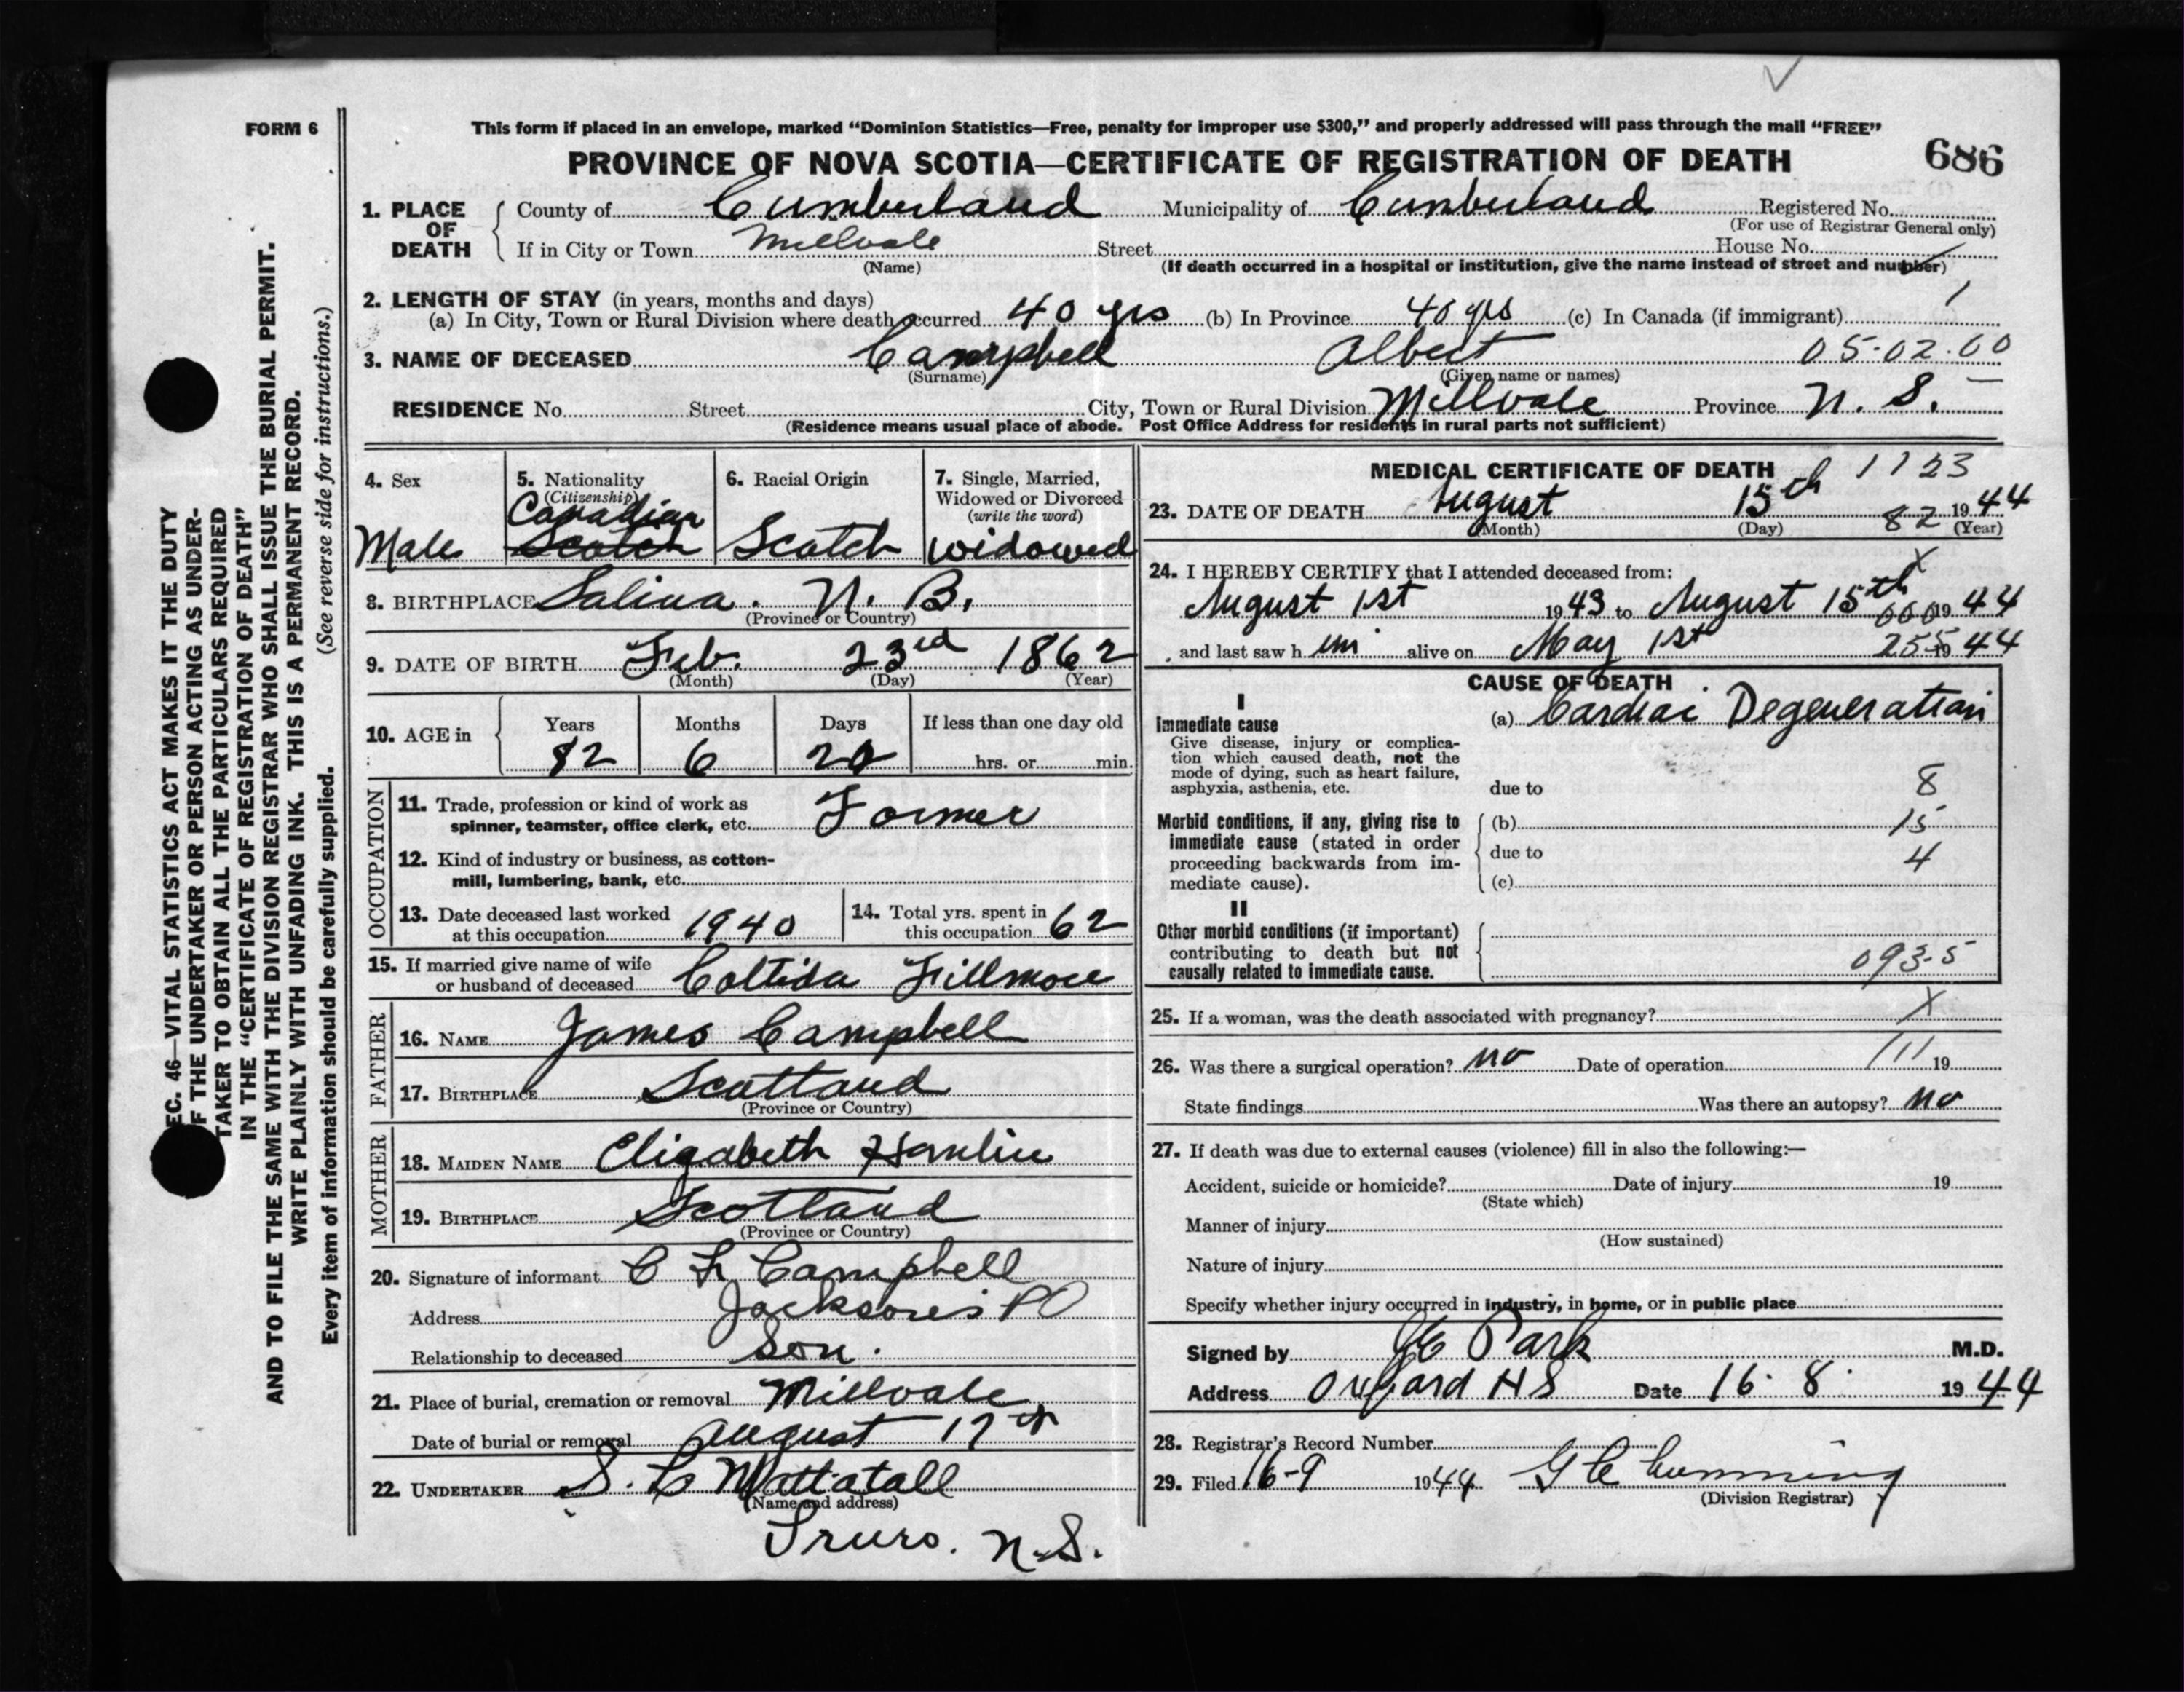 FORM 6
This form if placed in an envelope, marked “Dominion Statistics—Free, penalty for improper use $300,” and properly addressed will pass through the mail “FREE”
PROVINCE OF NOVA SCOTIA—CERTIFICATE OF REGISTRATION OF DEATH
686
1. PLACE OF DEATH
County of Cumberland Municipality of Cumberland Registered No.
(For use of Registrar General only)
If in City or Town Millvale Street House No.
(Name)
(If death occurred in a hospital or institution, give the name instead of street and number)
2. LENGTH OF STAY (in years, months and days)
(a) In City, Town or Rural Division where death occurred 40 yrs (b) In Province 40 yrs (c) In Canada (if immigrant)
3. NAME OF DECEASED Campbell Albert 05-02.00
(Surname) (Given name or names)
RESIDENCE No. Street City, Town or Rural Division Millvale Province N. S.
(Residence means usual place of abode. Post Office Address for residents in rural parts not sufficient)
4. Sex
Male
5. Nationality
(Citizenship)
Canadian
Scotch
6. Racial Origin
Scotch
7. Single, Married,
Widowed or Divorced
(write the word)
widowed
8. BIRTHPLACE Salina. N. B.
(Province or Country)
9. DATE OF BIRTH Feb. 23rd 1862
(Month) (Day) (Year)
10. AGE in
Years Months Days If less than one day old
82 6 20 hrs. or min.
OCCUPATION
11. Trade, profession or kind of work as
spinner, teamster, office clerk, etc. Farmer
12. Kind of industry or business, as cotton-
mill, lumbering, bank, etc.
13. Date deceased last worked
at this occupation 1940
14. Total yrs. spent in
this occupation 62
15. If married give name of wife
or husband of deceased Coltida Fillmore
FATHER
16. NAME James Campbell
17. BIRTHPLACE Scotland
(Province or Country)
MOTHER
18. MAIDEN NAME Elizabeth Hamlin
19. BIRTHPLACE Scotland
(Province or Country)
20. Signature of informant C F Campbell
Address Jacksons PO
Relationship to deceased Son.
21. Place of burial, cremation or removal Millvale
Date of burial or removal August 17th
22. UNDERTAKER S. L Mattatall
(Name and address)
Truro. N.S.
MEDICAL CERTIFICATE OF DEATH 1123
23. DATE OF DEATH August 15th 1944
(Month) (Day) 82 (Year)
24. I HEREBY CERTIFY that I attended deceased from: X
August 1st 1943 to August 15th 000 1944
and last saw h im alive on May 1st 255 1944
CAUSE OF DEATH
I
Immediate cause
Give disease, injury or complica-
tion which caused death, not the
mode of dying, such as heart failure,
asphyxia, asthenia, etc.
(a) Cardiac Degeneration
due to 8
Morbid conditions, if any, giving rise to
immediate cause (stated in order
proceeding backwards from im-
mediate cause).
(b) 15
due to 4
(c)
II
Other morbid conditions (if important)
contributing to death but not
causally related to immediate cause.
093-5
25. If a woman, was the death associated with pregnancy? X
26. Was there a surgical operation? no Date of operation 111 19
State findings Was there an autopsy? no
27. If death was due to external causes (violence) fill in also the following:—
Accident, suicide or homicide? Date of injury 19
(State which)
Manner of injury
(How sustained)
Nature of injury
Specify whether injury occurred in industry, in home, or in public place
Signed by Park M.D.
Address Oxford NS Date 16. 8. 1944
28. Registrar's Record Number
29. Filed 16-9 1944 G C Cumming
(Division Registrar)
EC. 46—VITAL STATISTICS ACT MAKES IT THE DUTY
F THE UNDERTAKER OR PERSON ACTING AS UNDER-
TAKER TO OBTAIN ALL THE PARTICULARS REQUIRED
IN THE “CERTIFICATE OF REGISTRATION OF DEATH”
AND TO FILE THE SAME WITH THE DIVISION REGISTRAR WHO SHALL ISSUE THE BURIAL PERMIT.
WRITE PLAINLY WITH UNFADING INK. THIS IS A PERMANENT RECORD.
Every item of information should be carefully supplied. (See reverse side for instructions.)